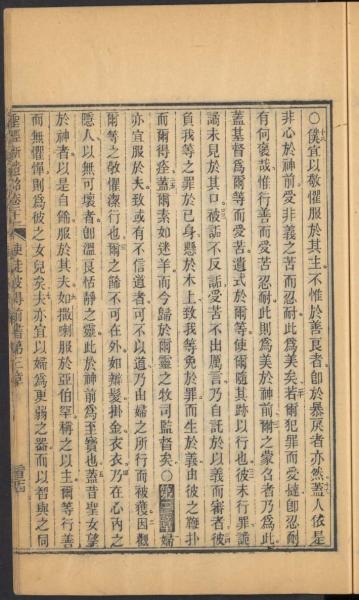 ○僕宜以敬懼服於其主不惟於善良者卽於暴戾者亦然蓋人依是
非心於神前受非義之苦而忍耐此爲美矣若爾犯罪而受撻卽忍耐
有何褒哉惟行善而受苦忍耐此則爲美於神前爾之蒙召者乃爲此
蓋基督爲爾等而受苦遺式於爾等使爾隨其跡以行也彼未行罪詭
譎未見於其口被詬不反詬受苦不出厲言乃自託於以義而審者彼
負我等之罪於已身懸於木上致我等免於罪而生於義由彼之鞭扑
而爾得痊蓋爾素如迷羊而今歸於爾靈之牧司監督矣○第三章婦
亦宜服於夫致或有不信道者可不以道乃由婦之所行而被獲因觀
爾等之敬懼潔行也爾之餙不可在外如辮髮掛金衣衣乃在心內之
隱人以無可壞者卽溫良恬靜之靈此於神前爲至寶也蓋昔聖女望
於神者以是自餙服於其夫如撒喇服於亞伯罕稱之以主爾等行善
而無懼憚則爲彼之女兒矣夫亦宜以婦爲更弱之器而以智與之同
聖經新遺詔卷二十一 使徒彼得前書第二章